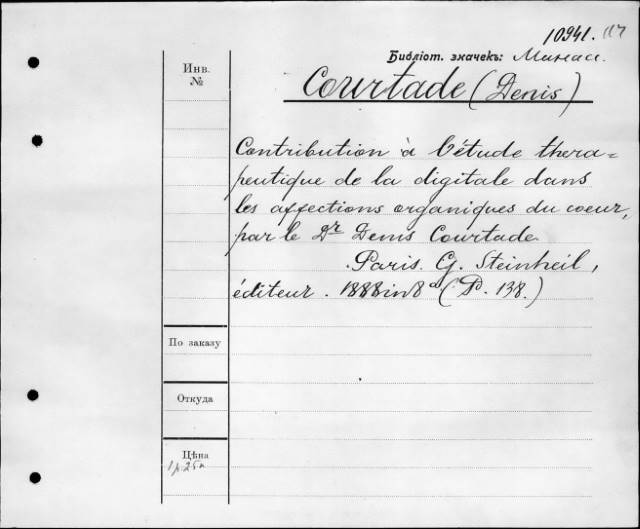 10941.
Библіот. значекъ: Манас.
Инв.
№
Courtade (Denis)
Contribution à l'étude thera=
peutique de la digitale dans
les affections organiques du coeur,
par le Dr Denis Courtade.
Paris. G. Steinheil,
éditeur. 1888 in 8° (P. 138.)
По заказу
Откуда
Цѣна
1 р 25 к